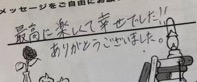 メッセージをご自由にお書
最高に楽しくて幸せでした!!
ありがとうございました。